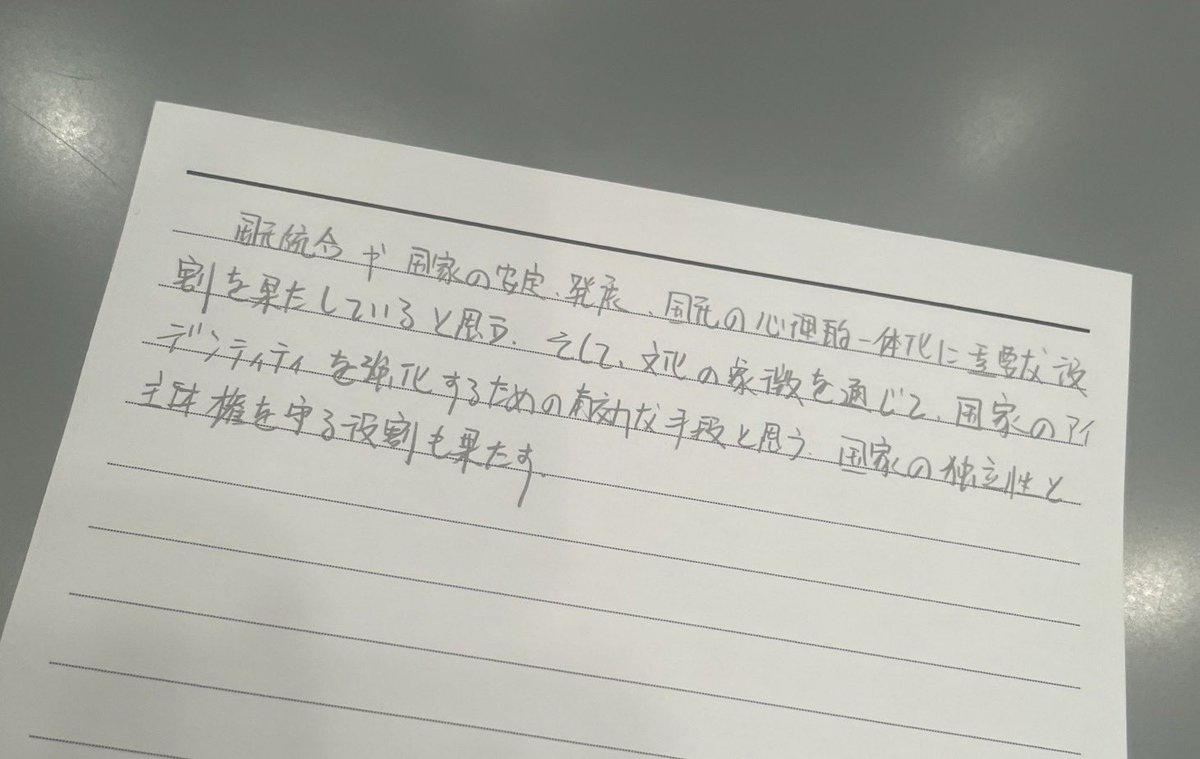 国民統合や国家の安定、発展、国民の心理的一体化に重要な役
割を果たしていると思う。そして、文化の象徴を通じて、国家のアイ
デンティティを強化するための有効な手段と思う。国家の独立性と
主体権を守る役割も果たす。